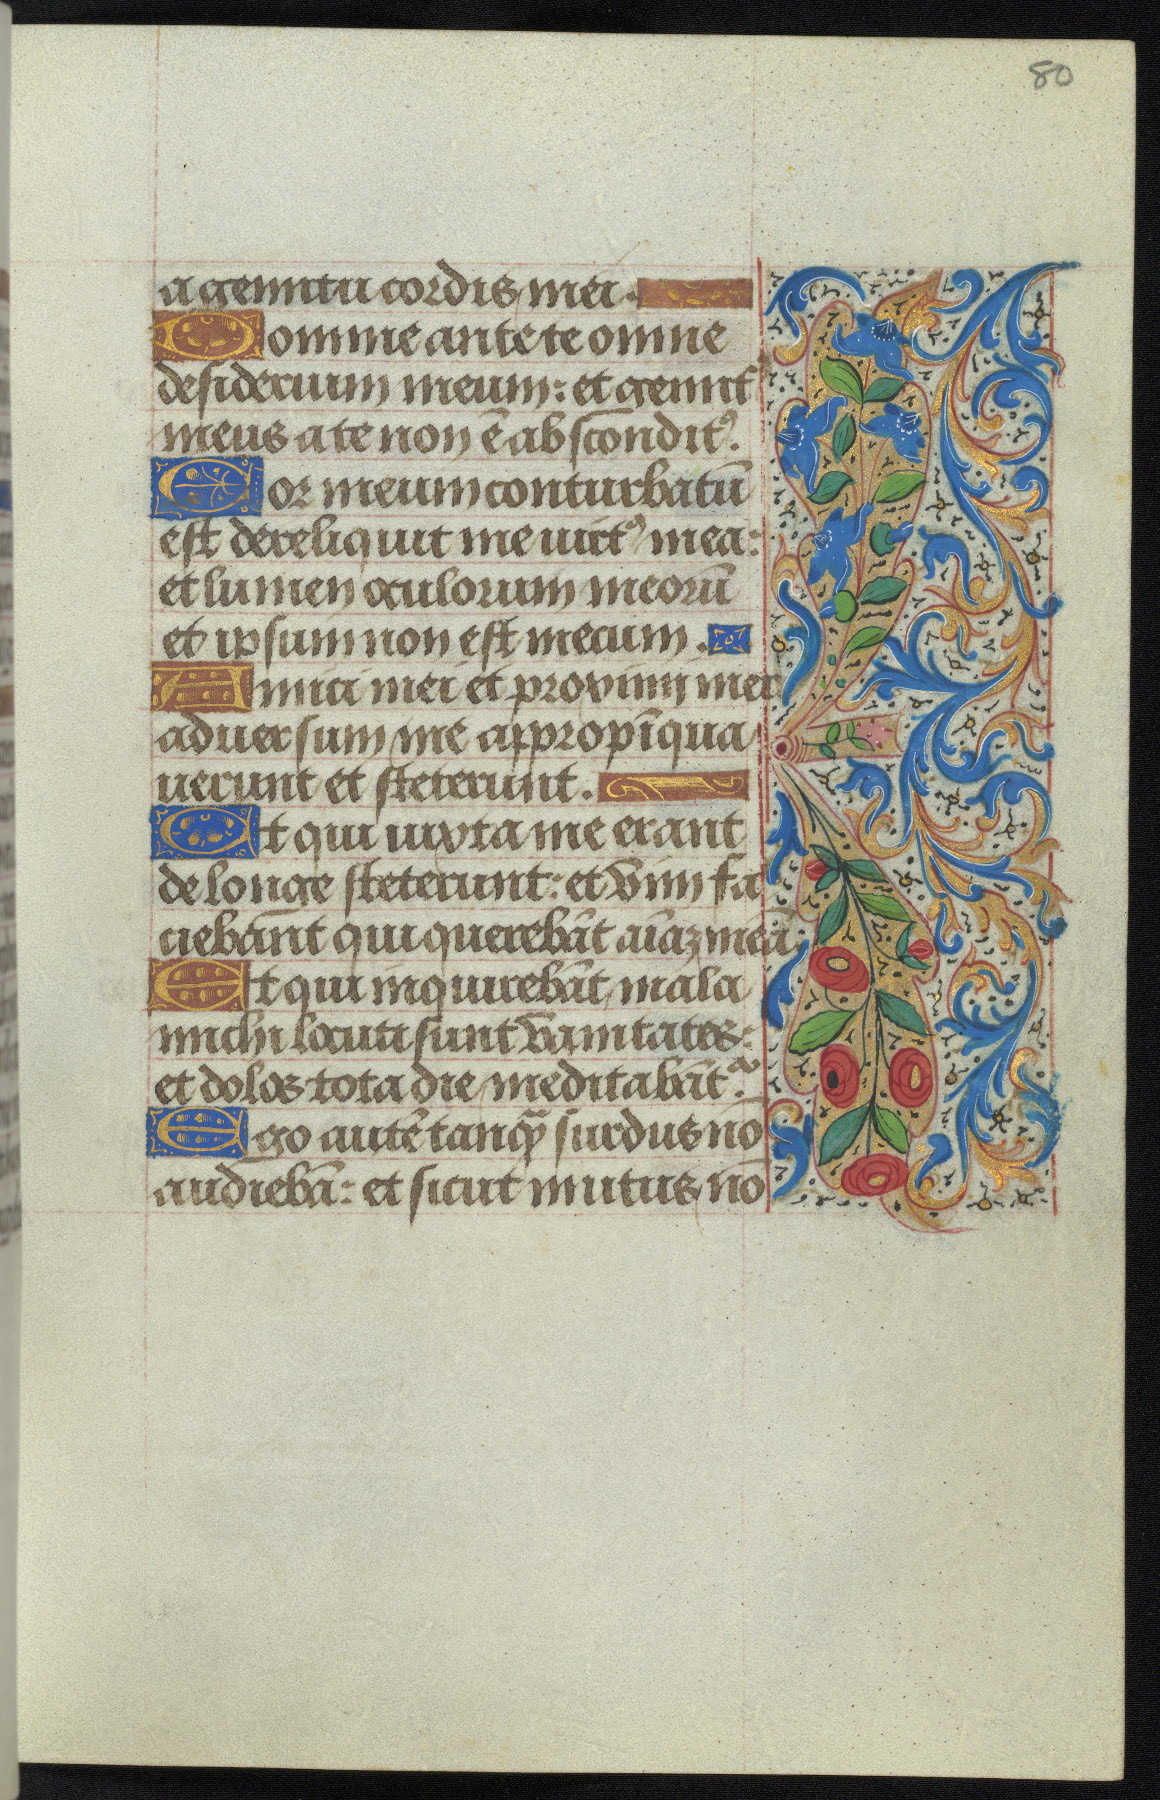 80
a gemitu cordis mei.
Domine ante te omne
desiderium meum: et gemit᷒
meus a te non ē abscondit᷒.
Cor meum conturbatū
est dereliquit me uirt᷒ mea:
et lumen oculorum meorū
et ipsum non est mecum.
Amici mei et proximi mei
aduersum me appropīqua
uerunt et steterunt.
Et qui iuxta me erant
de longe steterunt: et vim fa
ciebant qui querebāt aīaꝫ meā.
Et qui inquirebāt mala
michi locuti sunt vanitates:
et dolos tota die meditabāt᷒.
Ego autē tanqᷓ surdus nō
audiebā: et sicut mutus nō